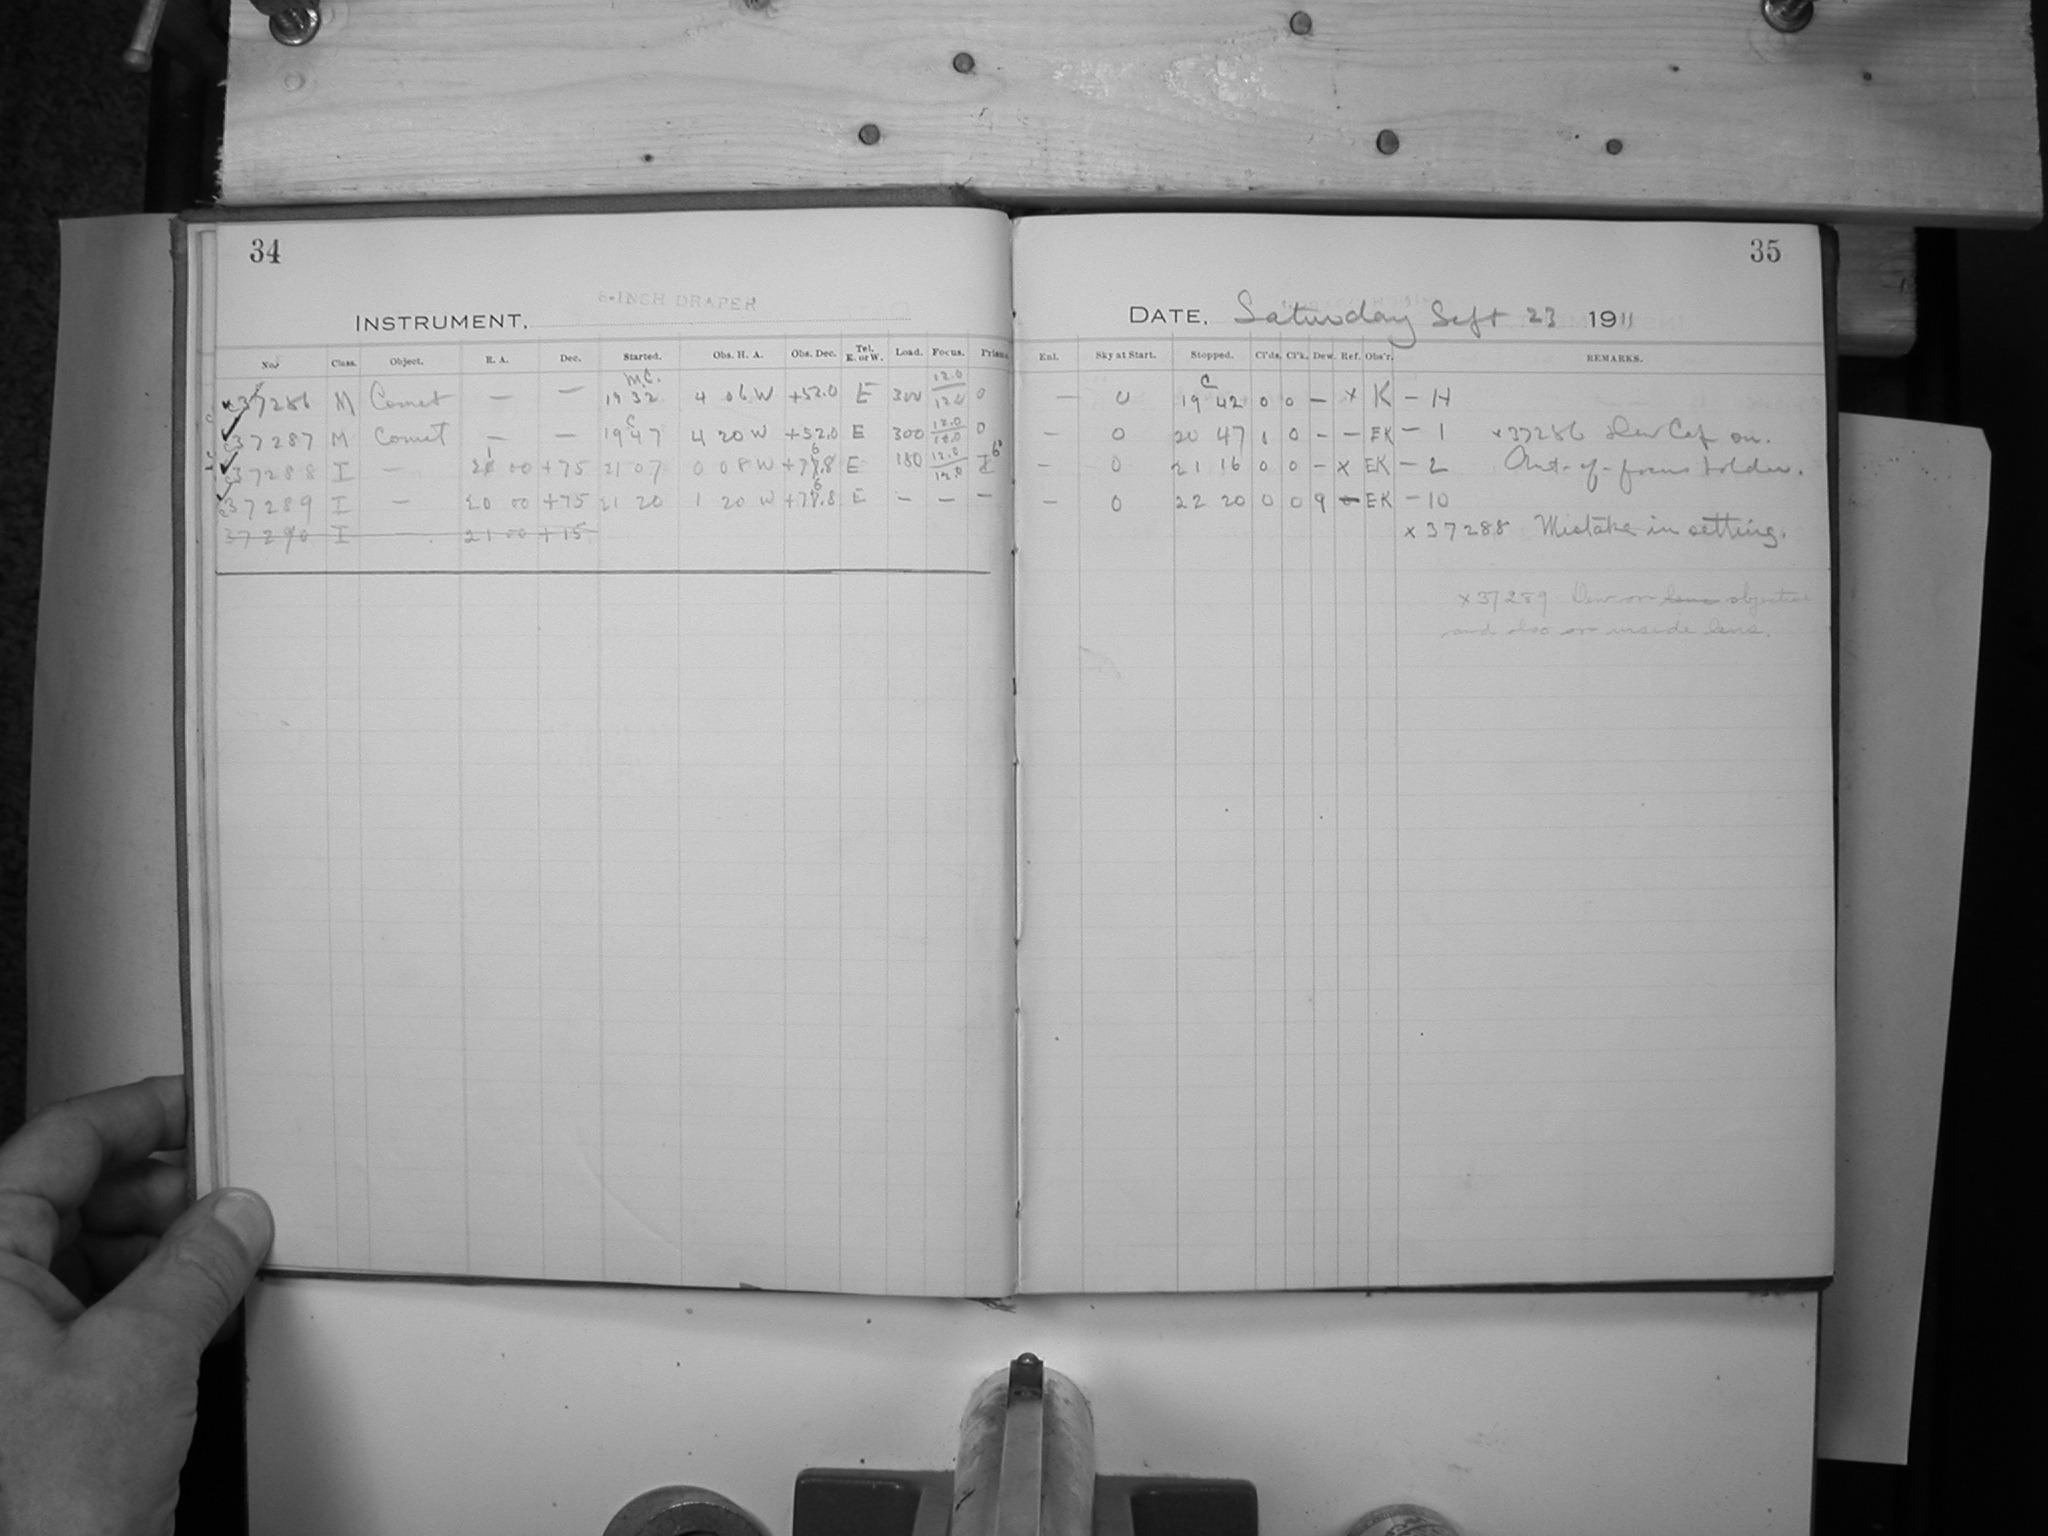 34
6-INCH DRAPER
INSTRUMENT.
No. Class. Object. R. A. Dec. Started. Obs. H. A. Obs. Dec. Tel. E. or W. Load. Focus. Prism.
37286 M Comet — — M.C. 19 32 4 06 W +52.0 E 300 12.0 0
37287 M Comet — — C 19 47 4 20 W +52.0 E 300 12.0 12.0 0
37288 I — 21 00 +75 21 07 0 08 W +76.8 E 180 12.0 12.0
37289 I — 20 00 +75 21 20 1 20 W +76.8 E — — —
37290 I — 21 00 +15
35
DATE. Saturday Sept 23 1911
Enl. Sky at Start. Stopped. Cl'ds. Cl'k. Dew. Ref. Obs'r. REMARKS.
— 0 C 19 42 0 0 — x K — H
— 0 20 47 1 0 — — EK — 1 x37286 Dew Cap on.
— 0 21 16 0 0 — x EK — 2 Out-of-focus holder.
— 0 22 20 0 0 9 — EK — 10
x 37288 Mistake in setting.
x 37289 Dew on lens objective
and also on inside lens.